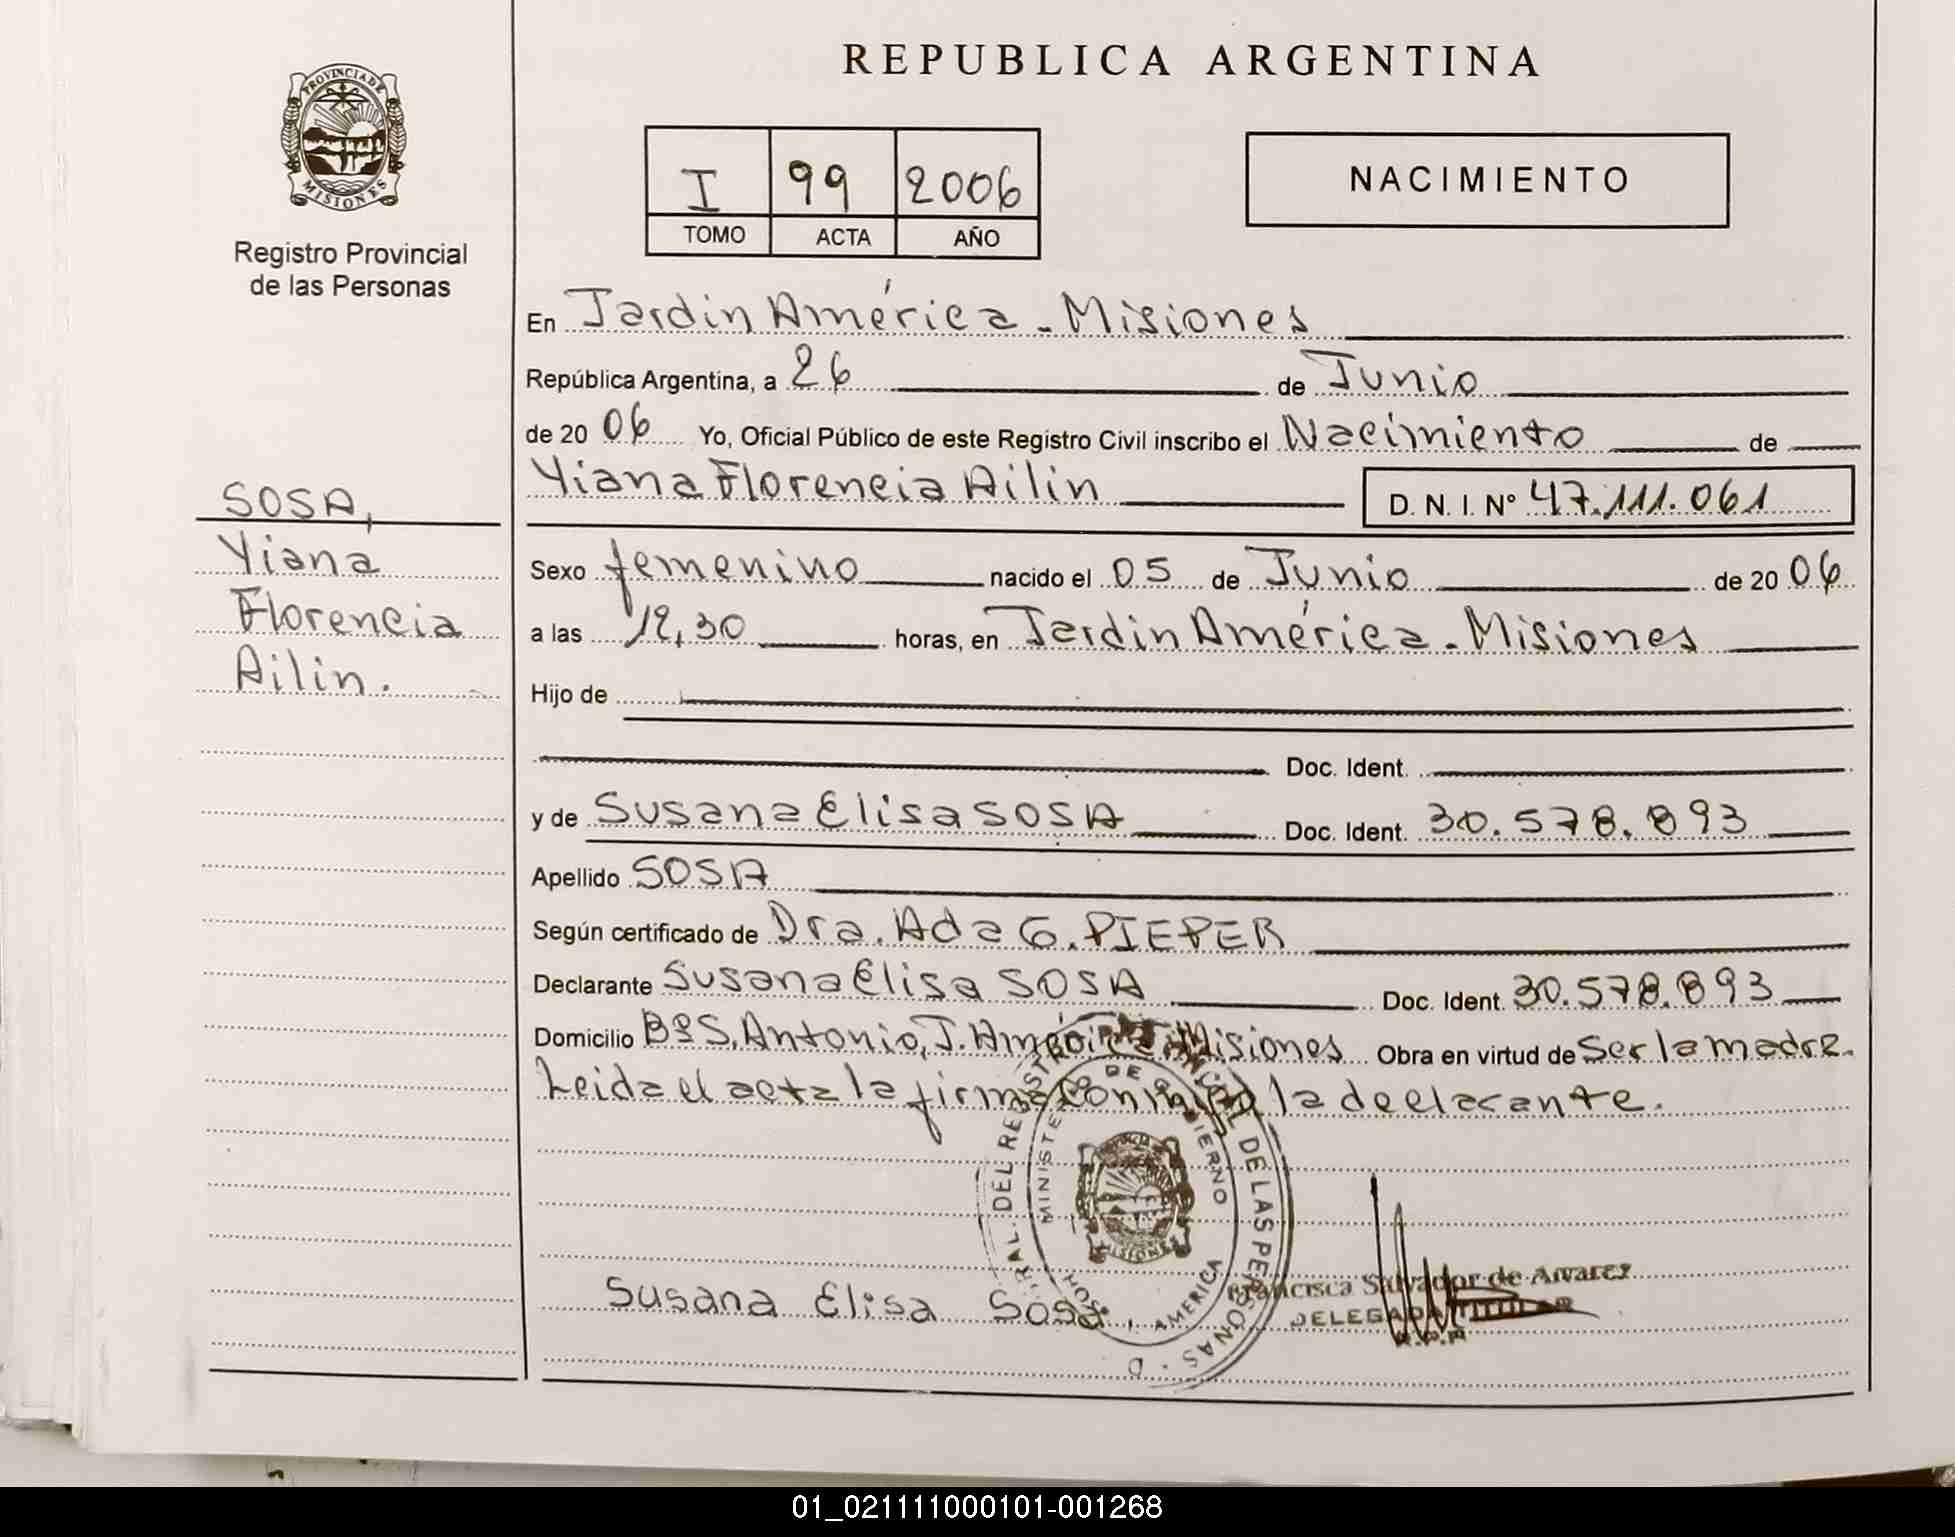 REPUBLICA ARGENTINA
PROVINCIA DE
MISIONES
Registro Provincial
de las Personas
I 99 2006
TOMO ACTA AÑO
NACIMIENTO
En Jardin América - Misiones
República Argentina, a 26 de Junio
de 20 06 Yo, Oficial Público de este Registro Civil inscribo el Nacimiento de
Yiana Florencia Ailin D. N. I. Nº 47.111.061
SOSA,
Yiana
Florencia
Ailin.
Sexo femenino nacido el 05 de Junio de 20 06
a las 12,30 horas, en Jardin América - Misiones
Hijo de
Doc. Ident.
y de Susana Elisa SOSA Doc. Ident. 30.578.893
Apellido SOSA
Según certificado de Dra. Ada G. PIEPER
Declarante Susana Elisa SOSA Doc. Ident. 30.578.893
Domicilio Bº S. Antonio, J. América Misiones Obra en virtud de Ser la madre.
Leida el acta la firma conmigo la declarante.
MINISTERIO DE GOBIERNO
DEL REGISTRO DE LAS PERSONAS
MISIONES
AMERICA
Susana Elisa Sosa.
Francisca Salvador de Alvarez
DELEGADA TITULAR
R.P.P
01_021111000101-001268